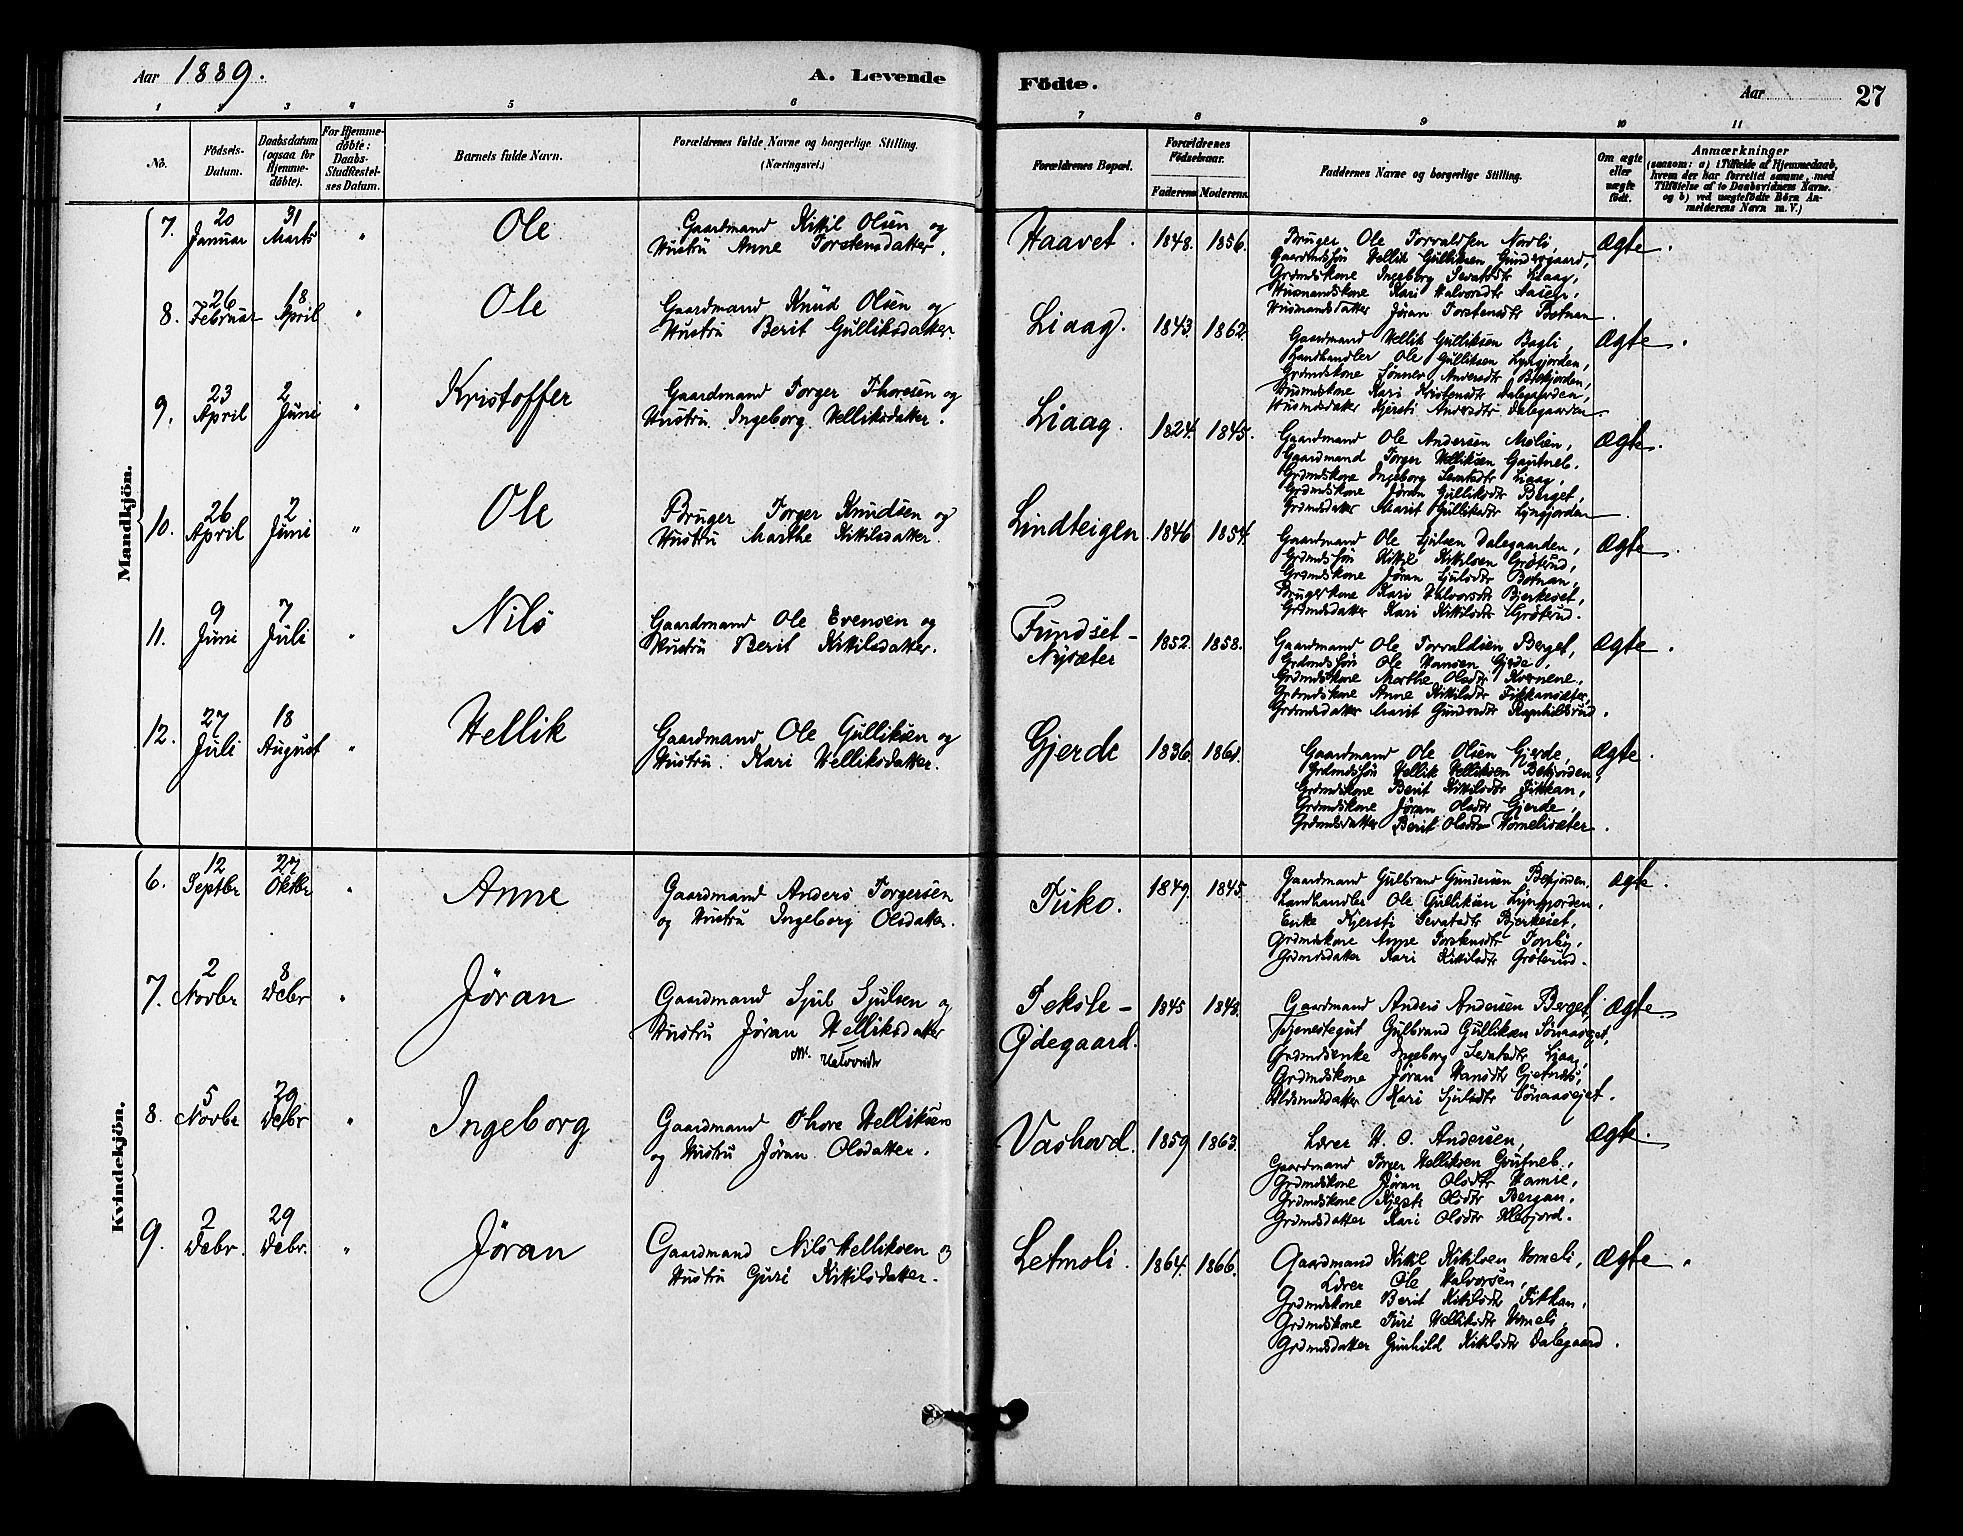 Aar 1889.
A. Levende
Födte.
Aar
27
1 2 3 4 5 6 7 8 9 10 11
No.
Födsels-Datum.
Daabsdatum (ogsaa for Hjemme-döbte).
For Hjemme-döbte: Daabs-Stadfæstelses Datum.
Barnets fulde Navn.
Forældrenes fulde Navne og borgerlige Stilling. (Næringsvei.)
Forældrenes Bopæl.
Forældrenes Födselsaar.
Faderens Moderens
Faddernes Navne og borgerlige Stilling.
Om ægte eller uægte födt.
Anmærkninger
(saasom: a) i Tilfælde af Hjemmedaab,
hvem der har forrettet samme, med
Tilföielse af to Daabsvidners Navne.
og b) ved uægtefödte Börn An-
melderens Navn m. V.)
Mandkjön.
7. 20 Januar 31 Marts " Ole
Gaardmand Kittil Olsen og
Hustru Anne Torstensdatter.
Haavet. 1848. 1856.
Bruger Ole Torvaldsen Nordli,
Gaardmdsön Hellik Gulliksen Gundersgaard,
Grdmdskone Ingeborg Sevatsdtr Liaag,
Husmandskone Kari Halvorsdtr Aasen,
Husmandsdatter Jøran Torstensdtr Botnan.
Ægte.
8. 26 Februar 18 April " Ole
Gaardmand Knud Olsen og
Hustru Berit Gulliksdatter.
Liaag. 1843. 1862.
Gaardmand Hellik Gulliksen Bagli,
Landhandler Ole Gulliksen Lyngjorden,
Grdmdskone Sønnev Andersdtr Bekjorden,
Husmdskone Kari Kristensdtr Dalegaarden,
Husmdsdatter Kjersti Andersdtr Dalegaarden.
Ægte.
9. 23 April 2 Juni " Kristoffer
Gaardmand Torger Thoresen og
Hustru Ingeborg Helliksdatter.
Liaag. 1824. 1845.
Gaardmand Ole Andersen Molien,
Gaardmand Torger Helliksen Gautneb.
Grdmdskone Ingeborg Sevatsdtr Liaag,
Grdmdskone Jøran Gulliksdtr Berget,
Grdmdsdatter Marit Gulliksdtr Lyngjorden.
Ægte.
10. 26 April 2 Juni " Ole
Bruger Torger Knudsen og
Hustru Marthe Kittilsdatter.
Lindteigen 1846 1854.
Gaardmand Ole Sjulsen Dalegaarden,
Grdmdssön Kittil Kittilsen Grøterud,
Grdmdskone Jøran Sjulsdtr Botnan,
Brugerkone Kari Halvorsdtr Bjerkeset,
Grdmdsdatter Kari Kittilsdtr Grøterud.
Ægte.
11. 9 Juni 7 Juli " Nils
Gaardmand Ole Evensen og
Hustru Berit Kittilsdatter.
Fundset-
Nysæter 1852. 1858.
Gaardmand Ole Torvaldsen Berget,
Grdmdssön Ole Hansen Gjerde,
Grdmdskone Marthe Olsdtr Kvernene,
Grdmdskone Anne Kittilsdtr Fikkansæter,
Grdmdsdatter Marit Gundersdtr Ragnhildsrud.
Ægte.
12. 27 Juli 18 August " Hellik
Gaardmand Ole Gulliksen og
Hustru. Kari Helliksdatter.
Gjerde 1836. 1861.
Gaardmand Ole Olsen Gjerde,
Grdmdssön Hellik Helliksen Bekjorden,
Grdmdskone Berit Kittilsdtr Fikkan,
Grdmdskone Jøran Olsdtr Gjerde,
Grdmdsdatter Berit Olsdtr Homelisæter.
Ægte.
Kvindekjön.
6. 12 Septbr 27 Oktbr " Anne
Gaardmand Anders Torgersen
og Hustru Ingeborg Olsdatter.
Tuko. 1849. 1845.
Gaardmand Gulbrand Gundersen Bekjorden,
Landhandler Ole Gulliksen Lyngjorden,
Enke Kjersti Sevatsdtr Bjerkeset,
Grdmdskone Anne Torstensdtr
Grdmdsdatter Kari Kittilsdtr Grøterud.
Ægte.
7. 2 Novbr 8 Debr " Jøran
Gaardmand Sjul Sjulsen og
Hustru Jøran Helliksdatter
Halvorsdtr
Teksle-
Ødegaard. 1845 1843.
Gaardmand Anders Andersen Berget,
Tjenestegut Gulbrand Gulliksen
Grdmdsenke Ingeborg Sevatsdtr Liaag,
Grdmdskone Jøran Hansdtr
Kari Sjulsdtr
Ægte.
8. 5 Novbr 29 Debr " Ingeborg
Gaardmand Thore Helliksen
og Hustru Jøran Olsdatter.
Vashovd. 1859 1863.
Lærer H. O. Andersen,
Gaardmand Torger Helliksen Gautneb,
Grdmdskone Jøran Olsdtr
Grdmdskone Olsdtr Bergan,
Grdmdsdatter Kari Olsdtr
Ægte.
9. 2 Debr. 29 Debr. " Jøran
Gaardmand Nils Helliksen og
Hustru Guri Kittilsdatter.
Letmoli. 1864. 1866.
Gaardmand Kittil Kittilsen Homeli,
Lærer Ole Halvorsen,
Grdmdskone Berit Kittilsdtr Fikkan,
Grdmdskone Turi Helliksdtr Homeli,
Grdmdsdatter Gunhild Kittilsdtr Dalegaard.
Ægte.